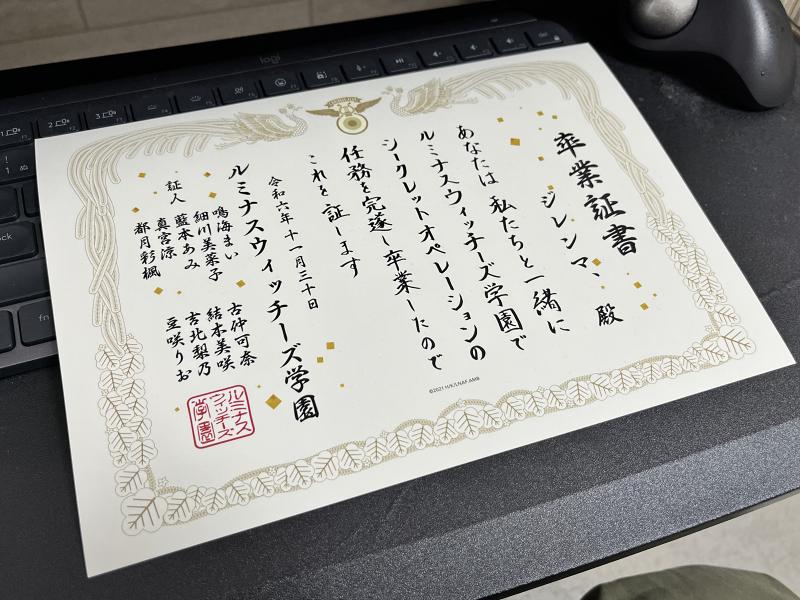 卒業証書
ジレンマ、 殿
あなたは 私たちと一緒に
ルミナスウィッチーズ学園で
シークレットオペレーションの
任務を完遂し卒業したので
これを証します
令和六年 十一月三十日
ルミナスウィッチーズ学園
証人
鳴海まい
細川美菜子
藍本あみ
真宮涼
都月彩楓
古仲可奈
結本美咲
吉北梨乃
豆咲りお
ルミナス
ウィッチーズ
学園
©2021 H/K/LNAF.AMB
logi
fn